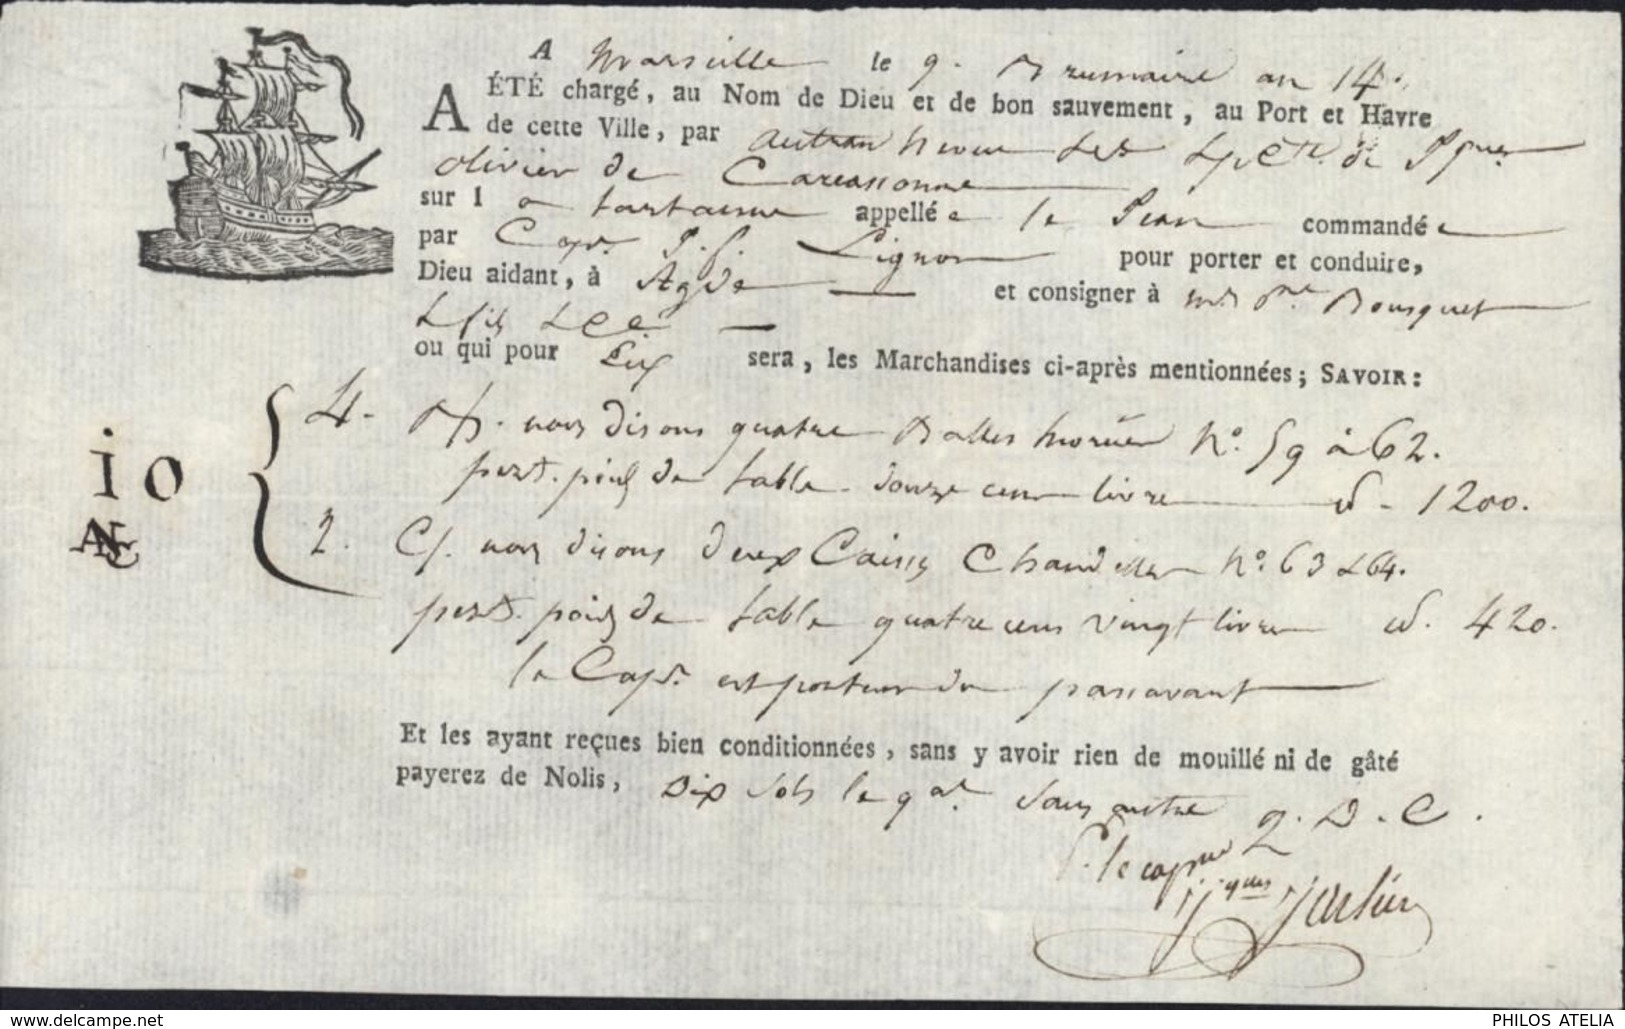 A Marseille le 9. Brumaire an 14.
A ÉTÉ chargé, au Nom de Dieu et de bon sauvement, au Port et Havre
de cette Ville, par Autran neveu
olivier de Carcassonne
sur l a tartanne appellée le Jean commandé
par Cape. Lignon pour porter et conduire,
Dieu aidant, à Agde et consigner à Bousquet
& fils & Ce.
ou qui pour Lui sera, les Marchandises ci-après mentionnées; SAVOIR:
4. nous disons quatre Balles morüe N°. 59 à 62.
pezt. poids de table douze cent livre 1200.
IO
ANC
2. Cs. nous disons deux Caisses Chandelles N°. 63 & 64.
pezt. poids de table quatre cens vingt livre 420.
le Cape. est porteur du passavant
Et les ayant reçues bien conditionnées, sans y avoir rien de mouillé ni de gâté
payerez de Nolis, Dix sols le qal. sans autre q. D. C.
P. le capne
PHILOS ATELIA
www.delcampe.net